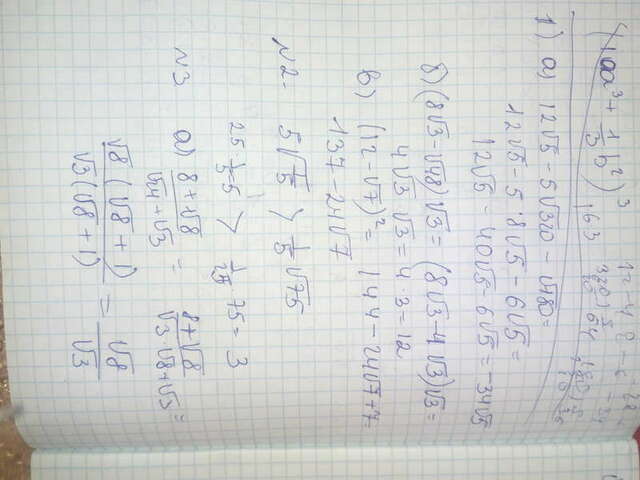 (1aa³ + 1/3 b²)³
1) а) 12√5 - 5√320 - √180 =
12√5 - 5·8√5 - 6√5 =
12√5 - 40√5 - 6√5 = -34√5
б) (8√3 - √48)√3 = (8√3 - 4√3)√3 =
4√3·√3 = 4·3 = 12
в) (12 - √7)² = 144 - 24√7 + 7 =
137 - 24√7
№2. 5√(1/5) > 1/5 √75
25·1/5 = 5 > 1/25·75 = 3
№3 а) (8+√8)/(√24+√3) = (8+√8)/(√3·√8+√3) =
√8(√8+1)/√3(√8+1) = √8/√3